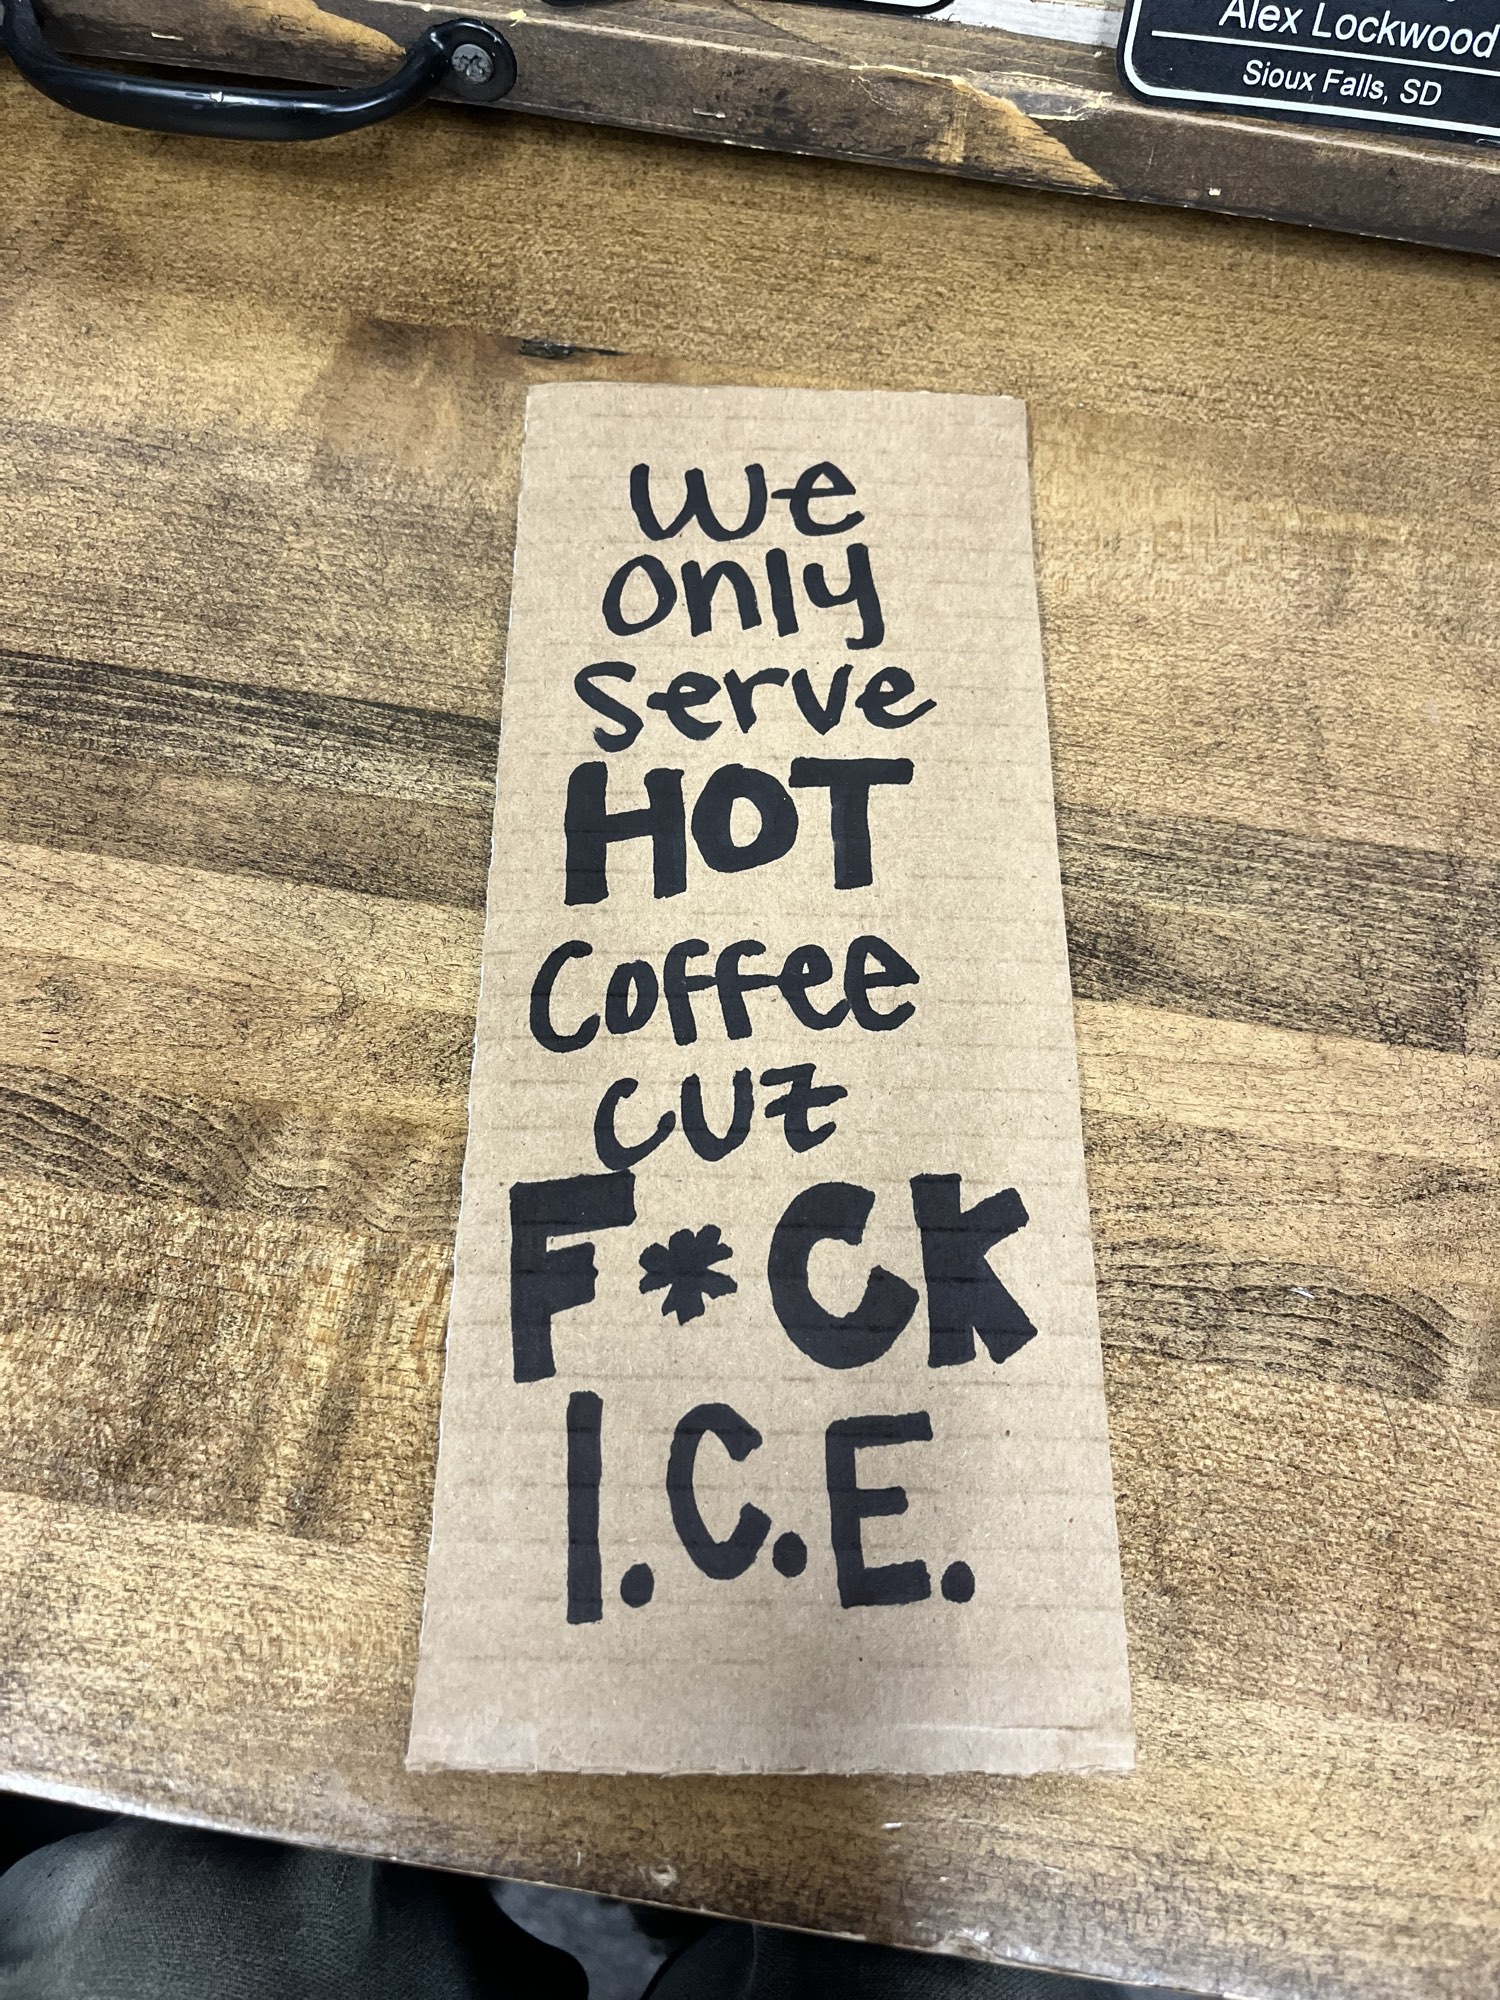 Alex Lockwood
Sioux Falls, SD
we
only
serve
HOT
coffee
cuz
F*CK
I.C.E.